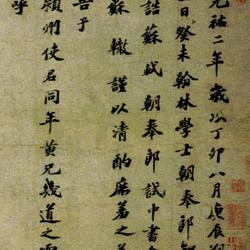 元祐二年歲次丁卯八月庚辰朔
日癸未翰林學士朝奉郎知
誥蘇軾朝奉郎試中書
蘇轍謹以清酌庶羞之
告于
潁州使君同年黃兄幾道之靈
呼